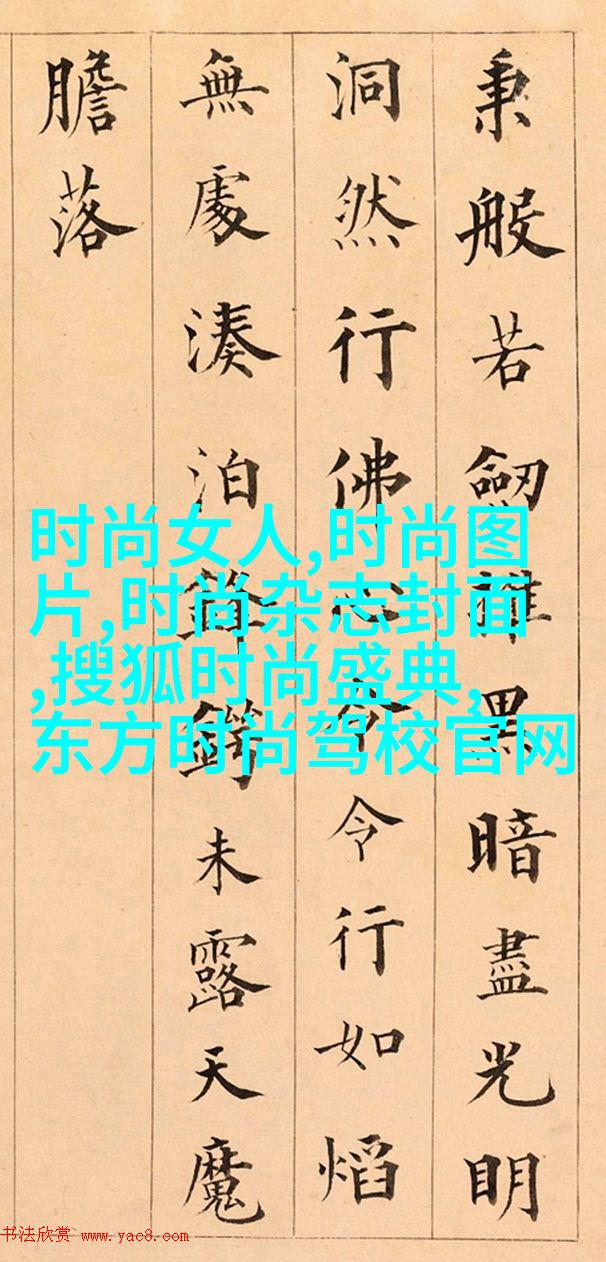 秉般若劒黑暗盡光明
洞然行佛心令令行如熖
無處湊泊鋒鍔未露天魔
膽落
时尚女人,时尚图
片,时尚杂志封面
,搜狐时尚盛典,
东方时尚驾校官网
书法欣赏 www.yac8.com